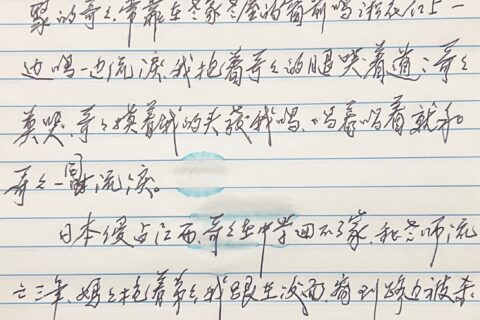 的哥々,常靠在老家老屋的窗前唱松花江上一
边唱一边流泪,我抱着哥々的腿哭着道:哥々
莫哭,哥々摸着我的头教我唱,唱着唱着就和
哥々一同流泪。
日本侵占江西,哥々在中学回不了家,和老师流
亡三年,妈々抱着弟々我跟在后面,看到路边被杀